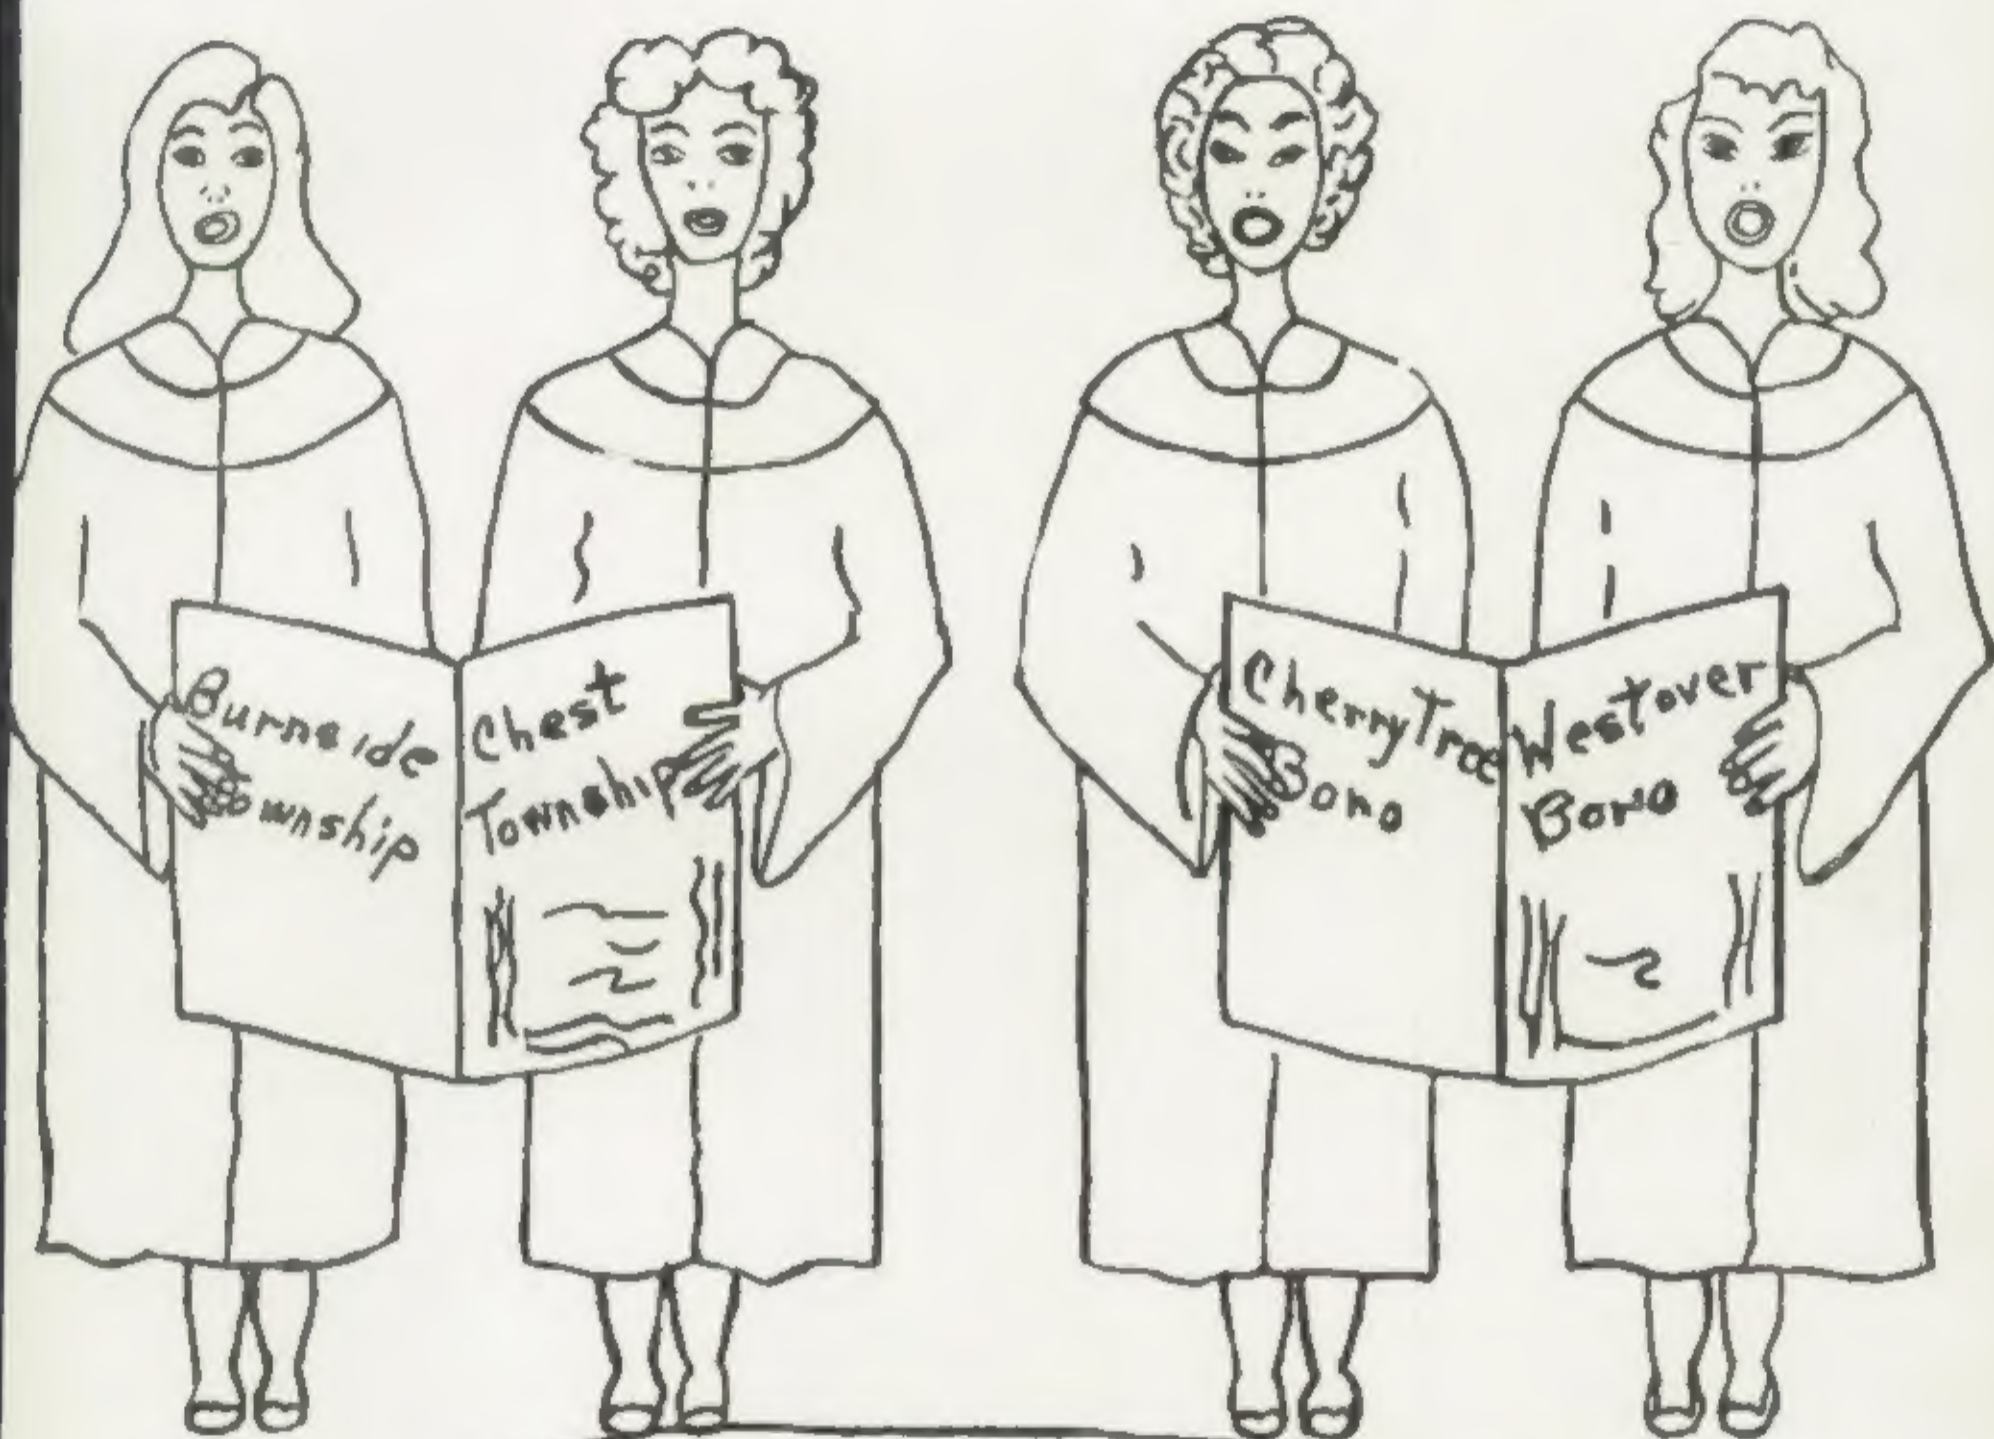 Burnside
Township
Chest
Township
Cherry Tree
Boro
Westover
Boro